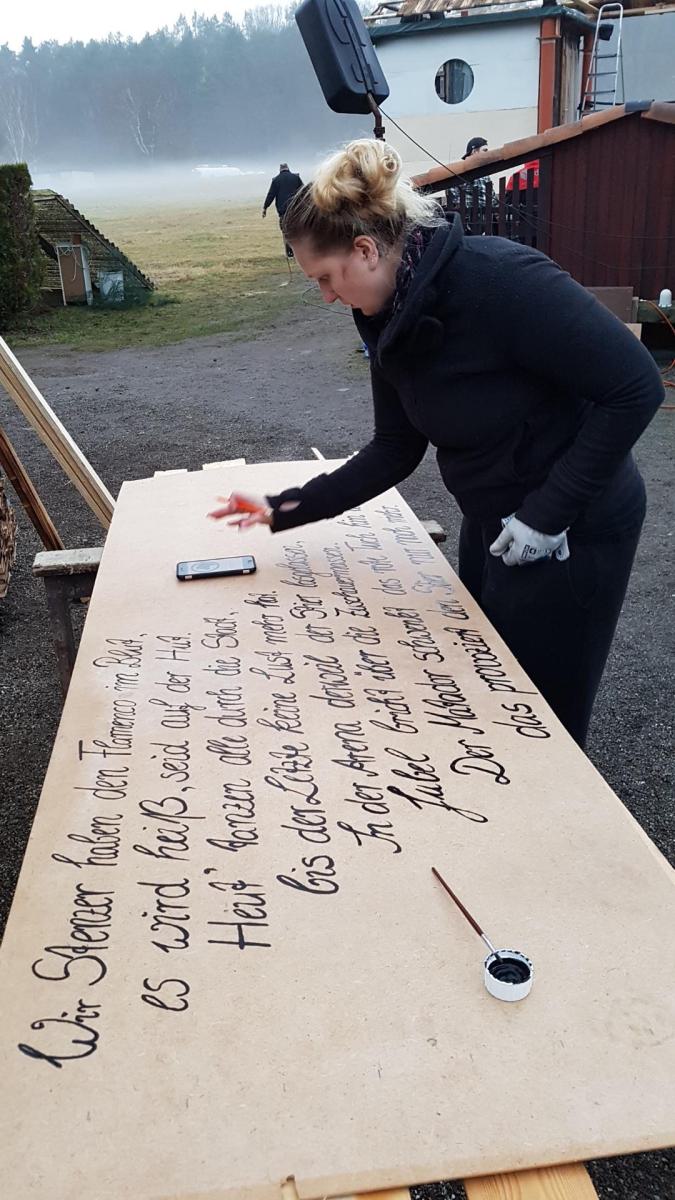 Wir Stenzer haben den Flamenco im Blut,
es wird heiß, seid auf der Hut.
Heut' tanzen alle durch die Stadt,
bis der Letzte keine Lust mehr hat.
In der Arena derweil der Stier losgelassen,
Jubel bricht über die Zuschauermassen.
Der Matador schwenkt das rote Tuch hin
das provoziert den Stier nur noch mehr.